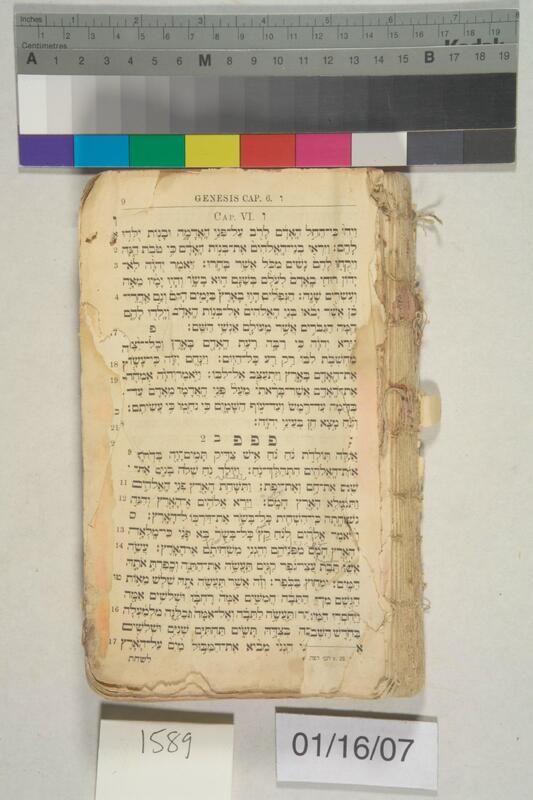 Inches 1 2 3 4 5 6 7 8
Centimetres
A 1 2 3 4 5 6 M 8 9 10 11 12 13 14 15 B 17 18 19
9 GENESIS CAP. 6. ו
CAP. VI. ו
וַיְהִי כִּי־הֵחֵל הָאָדָם לָרֹב עַל־פְּנֵי הָאֲדָמָה וּבָנוֹת יֻלְּדוּ
לָהֶם׃ וַיִּרְאוּ בְנֵי־הָאֱלֹהִים אֶת־בְּנוֹת הָאָדָם כִּי טֹבֹת הֵנָּה 2
וַיִּקְחוּ לָהֶם נָשִׁים מִכֹּל אֲשֶׁר בָּחָרוּ׃ וַיֹּאמֶר יְהֹוָה לֹא־ 3
יָדוֹן רוּחִי בָאָדָם לְעֹלָם בְּשַׁגַּם הוּא בָשָׂר וְהָיוּ יָמָיו מֵאָה
וְעֶשְׂרִים שָׁנָה׃ הַנְּפִלִים הָיוּ בָאָרֶץ בַּיָּמִים הָהֵם וְגַם אַחֲרֵי־ 4
כֵן אֲשֶׁר יָבֹאוּ בְּנֵי הָאֱלֹהִים אֶל־בְּנוֹת הָאָדָם וְיָלְדוּ לָהֶם
הֵמָּה הַגִּבֹּרִים אֲשֶׁר מֵעוֹלָם אַנְשֵׁי הַשֵּׁם׃ פ
וַיַּרְא יְהֹוָה כִּי רַבָּה רָעַת הָאָדָם בָּאָרֶץ וְכָל־יֵצֶר
מַחְשְׁבֹת לִבּוֹ רַק רַע כָּל־הַיּוֹם׃ וַיִּנָּחֶם יְהֹוָה כִּי־עָשָׂה
אֶת־הָאָדָם בָּאָרֶץ וַיִּתְעַצֵּב אֶל־לִבּוֹ׃ וַיֹּאמֶר יְהֹוָה אֶמְחֶה
אֶת־הָאָדָם אֲשֶׁר־בָּרָאתִי מֵעַל פְּנֵי הָאֲדָמָה מֵאָדָם עַד־
בְּהֵמָה עַד־רֶמֶשׂ וְעַד־עוֹף הַשָּׁמָיִם כִּי נִחַמְתִּי כִּי עֲשִׂיתִם׃
וְנֹחַ מָצָא חֵן בְּעֵינֵי יְהֹוָה׃
פ פ פ ב 2
אֵלֶּה תּוֹלְדֹת נֹחַ נֹחַ אִישׁ צַדִּיק תָּמִים הָיָה בְּדֹרֹתָיו 9
אֶת־הָאֱלֹהִים הִתְהַלֶּךְ־נֹחַ׃ וַיּוֹלֶד נֹחַ שְׁלֹשָׁה בָנִים אֶת־
שֵׁם אֶת־חָם וְאֶת־יָפֶת׃ וַתִּשָּׁחֵת הָאָרֶץ לִפְנֵי הָאֱלֹהִים 11
וַתִּמָּלֵא הָאָרֶץ חָמָס׃ וַיַּרְא אֱלֹהִים אֶת־הָאָרֶץ וְהִנֵּה 12
נִשְׁחָתָה כִּי־הִשְׁחִית כָּל־בָּשָׂר אֶת־דַּרְכּוֹ עַל־הָאָרֶץ׃ ס
אֱלֹהִים לְנֹחַ קֵץ כָּל־בָּשָׂר בָּא לְפָנַי כִּי־מָלְאָה 13
הָאָרֶץ חָמָס מִפְּנֵיהֶם וְהִנְנִי מַשְׁחִיתָם אֶת־הָאָרֶץ׃ עֲשֵׂה 14
תֵּבַת עֲצֵי־גֹפֶר קִנִּים תַּעֲשֶׂה אֶת־הַתֵּבָה וְכָפַרְתָּ אֹתָהּ
וּמִחוּץ בַּכֹּפֶר׃ וְזֶה אֲשֶׁר תַּעֲשֶׂה אֹתָהּ שְׁלֹשׁ מֵאוֹת טו
הַתֵּבָה חֲמִשִּׁים אַמָּה רָחְבָּהּ וּשְׁלֹשִׁים אַמָּה
תַּעֲשֶׂה לַתֵּבָה וְאֶל־אַמָּה תְּכַלֶּנָּה מִלְמַעְלָה 16
בְּצִדָּהּ תָּשִׂים תַּחְתִּיִּם שְׁנִיִּם וּשְׁלִשִׁים
הִנְנִי מֵבִיא אֶת־הַמַּבּוּל מַיִם עַל־הָאָרֶץ 17
לשחת
1589
01/16/07